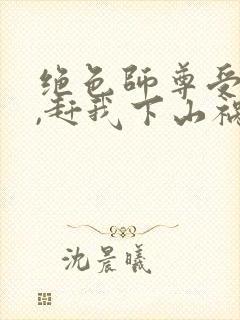 绝色师尊受
,赶我下山祸
沈晨曦